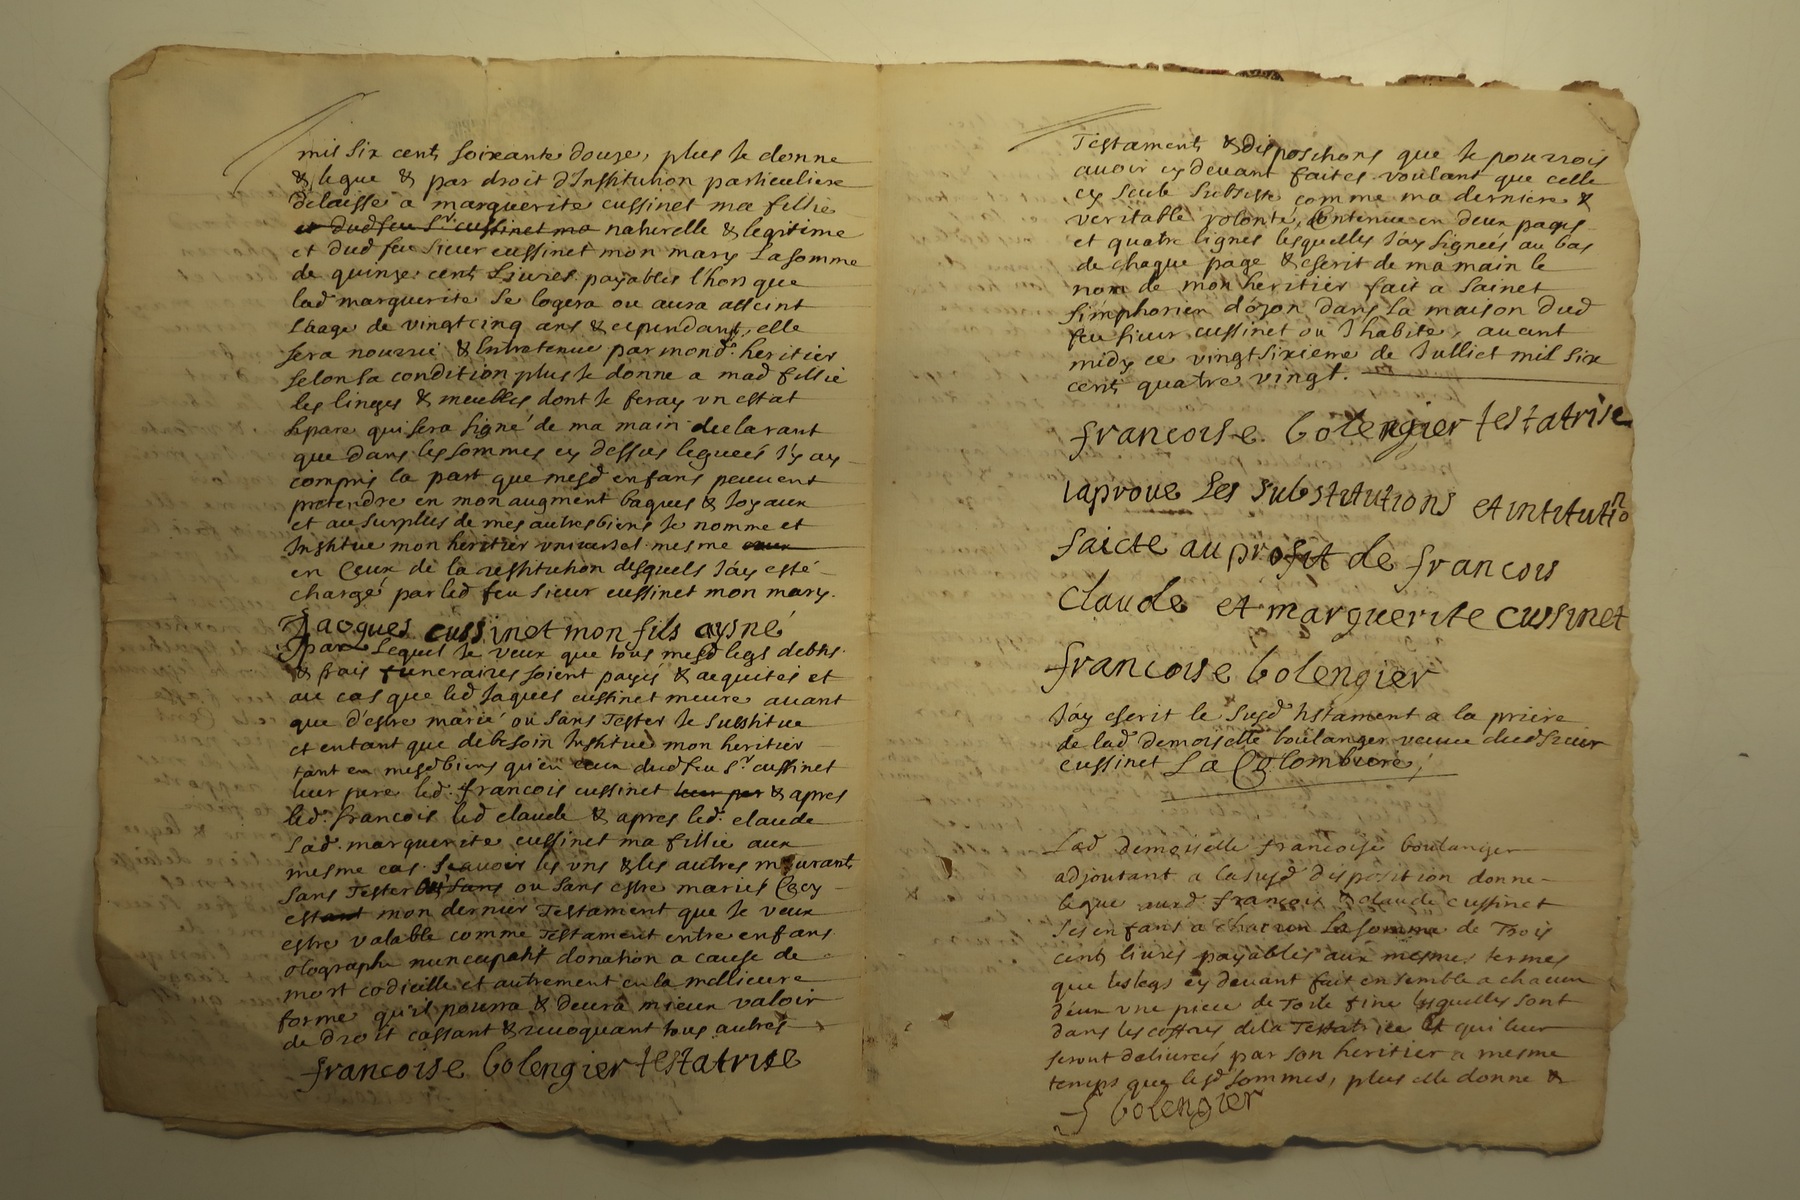 mil six cents soixante douze, plus Je donne
& legue & par droit d'Institution particuliere
delaisse a marguerite cussinet ma fillie
et dud feu Sr. cussinet ma naturelle & legitime
et dud feu sieur cussinet mon mary La somme
de quinze cents Livres payables l'hors que
lad marguerite se logera ou aura atteint
Laage de vingtcinq ans & cependant, elle
sera nourrie & Entretenue par mond. heritier
selon sa condition plus Je donne a mad fillie
les linges & meubles dont Je feray un estat
separe qui sera signé de ma main declarant
que dans les sommes cy dessus leguees J'y ay
compris la part que mesd enfans peuvent
pretendre en mon augment bagues & Joyaux
et au surplus de mes autres biens Je nomme et
Institue mon heritier universel mesme
en Ceux de la restitution desquels J'ay esté
chargé par led feu sieur cussinet mon mary.
Jacques cussinet mon fils aysné
par Lequel Je veux que tous mesd legs debtes
& frais funeraires soient payés & acquités et
au cas que led Jaques cussinet meure avant
que d'estre marié ou sans Tester Je substitue
et entant que de besoin Institue mon heritier
tant en mesd biens qu'en ceux dud feu Sr cussinet
leur pere led. francois cussinet leur per & apres
led. francois led claude & apres led. claude
Lad. marguerite cussinet ma fillie aux
mesme cas Scavoir les uns & les autres mourants
sans Tester sans ou sans estre mariés Cecy
estant mon dernier Testament que Je veux
estre valable comme Testament entre enfans
olographe nuncupatif donation a cause de
mort codicille et autrement en la mellieure
forme qu'il pourra & devra mieux valoir
de droit cassant & revoquant tous autres
francoise bolengier testatrise
Testaments & dispositions que Je pourrois
avoir cy devant faites voulant que celle
cy seule subsiste comme ma derniere &
veritable volonté, Contenue en deux pages
et quatre lignes lesquelles J'ay signées au bas
de chaque page & escrit de ma main le
nom de mon heritier fait a sainct
simphorien d'ozon dans La maison dud
feu sieur cussinet ou J'habite, avant
midy ce vingtsixieme de Julliet mil six
cents quatre vingt.
francoise bolengier testatrise
iaprouve les substitutions et intitution
faicte au profit de francois
claude et marguerite cussinet
francoise bolengier
J'ay escrit le susd testament a la priere
de lad demoiselle boulanger veuve dud sieur
cussinet La Colombiere,
Lad demoiselle francoise boulanger
adjoutant a la susd disposition donne
legue auxd. francois & claude cussinet
ses enfans a chacun La somme de Trois
cents livres payables aux mesmes termes
que les legs cy devant fait ensemble a chacun
d'eux une piece de Toile fine lesquelles sont
dans les coffres de la Testatrice et qui leur
seront delivrées par son heritier a mesme
temps que lesd sommes, plus elle donne &
f bolengier